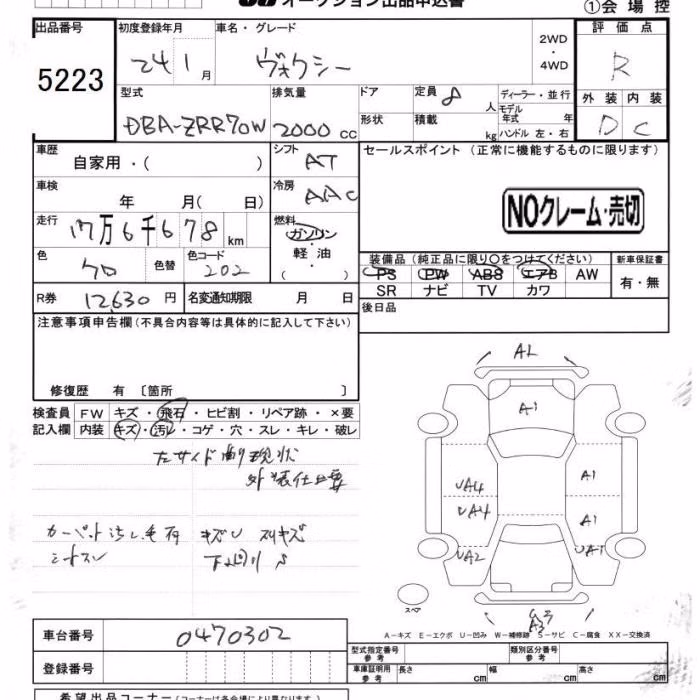 オークション出品申込書
①会 場 控
出品番号
5223
初度登録年月
24 1 月
車名・グレード
ヴォクシー
2WD
・
4WD
評 価 点
R
外 装 内 装
D C
型式
DBA-ZRR70W
排気量
2000 CC
ドア
形状
定員 8 人
積載 kg
ディーラー・並行
モデル
年式 年
ハンドル 左・右
車歴
自家用・( )
シフト
AT
車検
年 月( 日)
冷房
AAC
走行
17万6千678 km
燃料
ガソリン
・
軽 油
・
( )
色
クロ
色替
色コード
202
R券 12,630 円
名変通知期限 月 日
セールスポイント (正常に機能するものに限ります)
NOクレーム・売切
装備品 (純正品に限り〇をつけてください)
PS PW ABS エアB AW
SR ナビ TV カワ
新車保証書
有・無
後日品
注意事項申告欄(不具合内容等は具体的に記入して下さい)
修復歴 有 〔箇所 〕
検査員 FW キズ・飛石・ヒビ割・リペア跡・×要
記入欄 内装 キズ・汚レ・コゲ・穴・スレ・キレ・破レ
左サイド
現状
外装仕上要
キズU
下回り
A1
A1
A1
UA4
UA4
UA2
UA1
A3
スペア
A-キズ E-エクボ U-凹み W-補修跡 S-サビ C-腐食 XX-交換済
車台番号 0470302
登録番号
型式指定番号
参考
類別区分番号
参考
車庫証明用
参考
長さ cm 幅 cm 高さ cm
希望出品コーナー